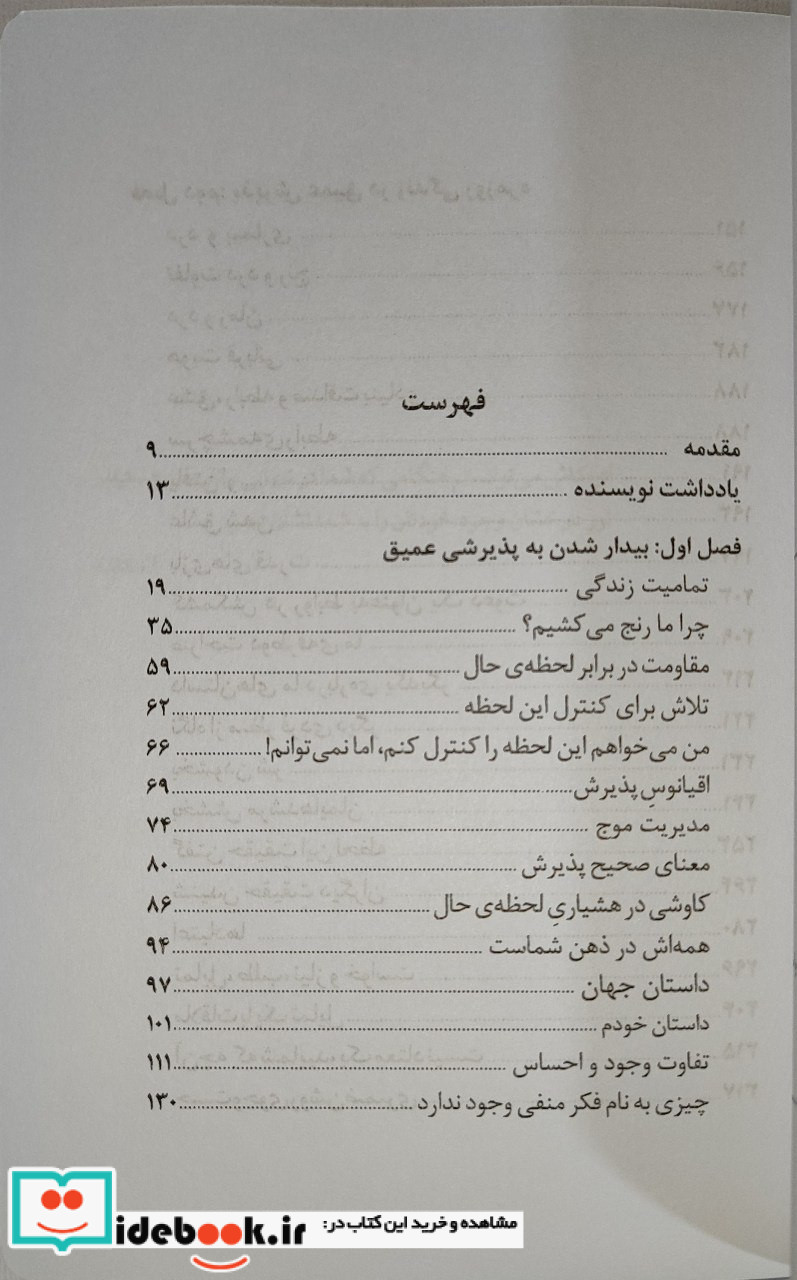 فهرست
مقدمه ........ ۹
یادداشت نویسنده ........ ۱۳
فصل اول: بیدار شدن به پذیرشی عمیق
تمامیت زندگی ........ ۱۹
چرا ما رنج می‌کشیم؟ ........ ۳۵
مقاومت در برابر لحظه‌ی حال ........ ۵۹
تلاش برای کنترل این لحظه ........ ۶۲
من می‌خواهم این لحظه را کنترل کنم، اما نمی‌توانم! ........ ۶۶
اقیانوسِ پذیرش ........ ۶۹
مدیریت موج ........ ۷۴
معنای صحیح پذیرش ........ ۸۰
کاوشی در هشیاریِ لحظه‌ی حال ........ ۸۶
همه‌اش در ذهن شماست ........ ۹۴
داستان جهان ........ ۹۷
داستان خودم ........ ۱۰۱
تفاوت وجود و احساس ........ ۱۱۱
چیزی به نام فکر منفی وجود ندارد ........ ۱۳۰
مشاهده و خرید این کتاب در:
idebook.ir